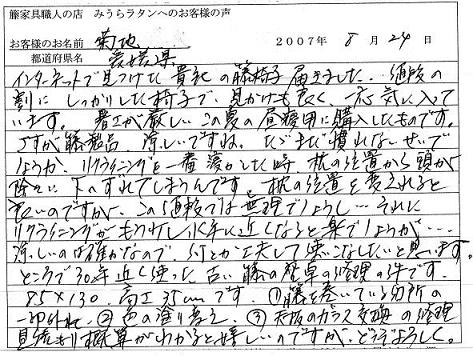 籐家具職人の店 みうらラタンへのお客様の声
お客様のお名前 菊地
都道府県名 愛媛県
2007年 8月 24
インターネットで見つけた貴社の籐椅子届きました。値段の
割にしっかりした椅子で、見かけも良く、一応気に入って
います。暑さが厳しいこの夏の昼寝用に購入したものです。
さすが籐製品 涼しいですね。ただまだ慣れないせいで
しょうか、リクライニングを一番深くした時、枕の位置から頭が
除々に下へずれてしまうんです。枕の位置を変えれると
良いのですが、この値段では無理でしょうし…それに
リクライニングがもう少し水平に近くなると楽でしょうが…
涼しいのは確かなので、何とか工夫して使いこなしたいと思います。
ところで30年近く使った古い籐の座卓の修理の件です。
85×130、高さ35cmです。①籐を巻いている部分の
一部外れ ②色の塗り替え、③天板のガラス交換の修理
見積もり概算がわかると嬉しいのですが、どうぞよろしく。